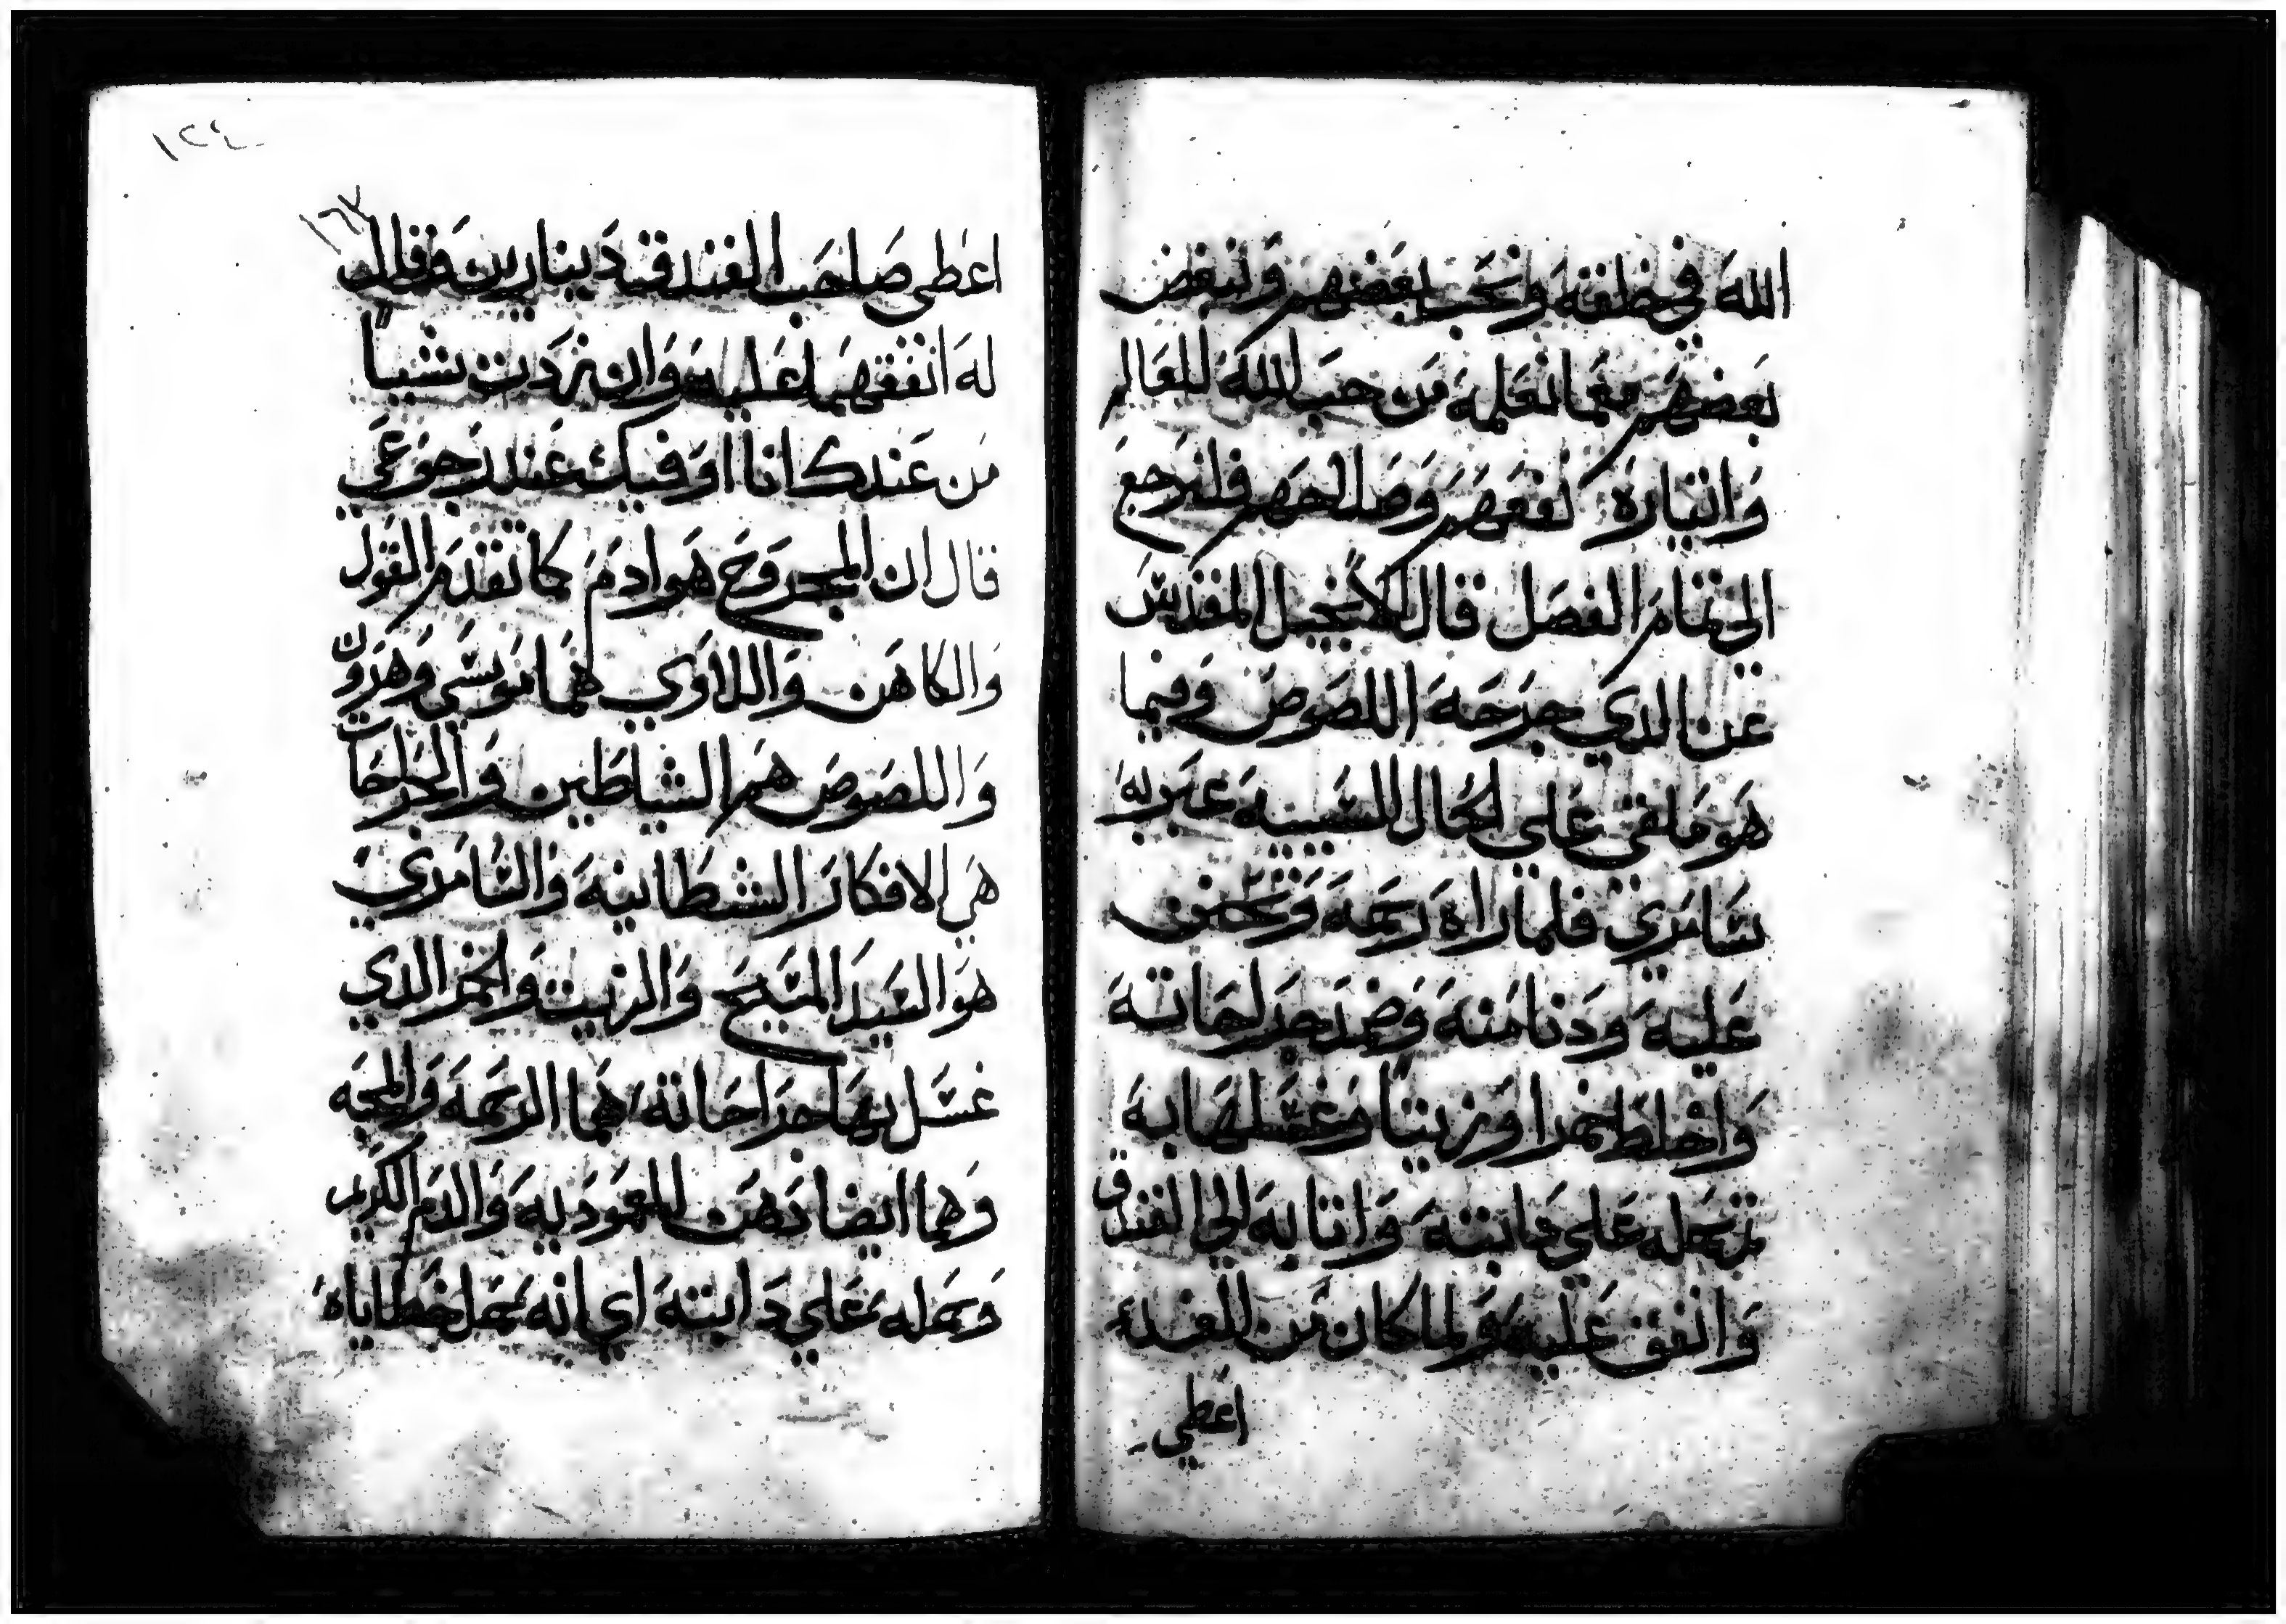 الله في خلقته ونحب بعضهم ونبغض
بعضهم فمما نعلمه من حب الله للعالم
وانتياره نفعهم وصلاحهم فلنرجع
الي تمام الفصل قال الانجيل المقدس
عن الدي جرحه اللصوص وفيما
هو ملقي علي الحال السيية عبر به
سامري فلما راه رحمه وتحنن
عليه ودنا منه وضمد جراحاته
واخلط خمرا وزيتا وغسلها به
تم حمله علي دابته واتا به الي الفندق
وانفق عليه ولما كان من الغد
اعطي
١٢٤
١٦٧
اعطي صاحب الفندق دينارين وقال
له انفقهما عليه وان زدت شييا
من عندك انا اوفيك عند رجوعي
قال ان المجروح هو ادم كما تقدم القول
والكاهن واللاوي هما موسي وهرون
واللصوص هم الشياطين والجراحات
هي الافكار الشطانيه والسامري
هو السيد المسيح والزيت والخمر الدي
غسل بها جراحاته هما الرحمه والمحبه
وهما ايضا دهن المعموديه والدم الكريم
وحمله علي دابته اي انه حمل خطاياه